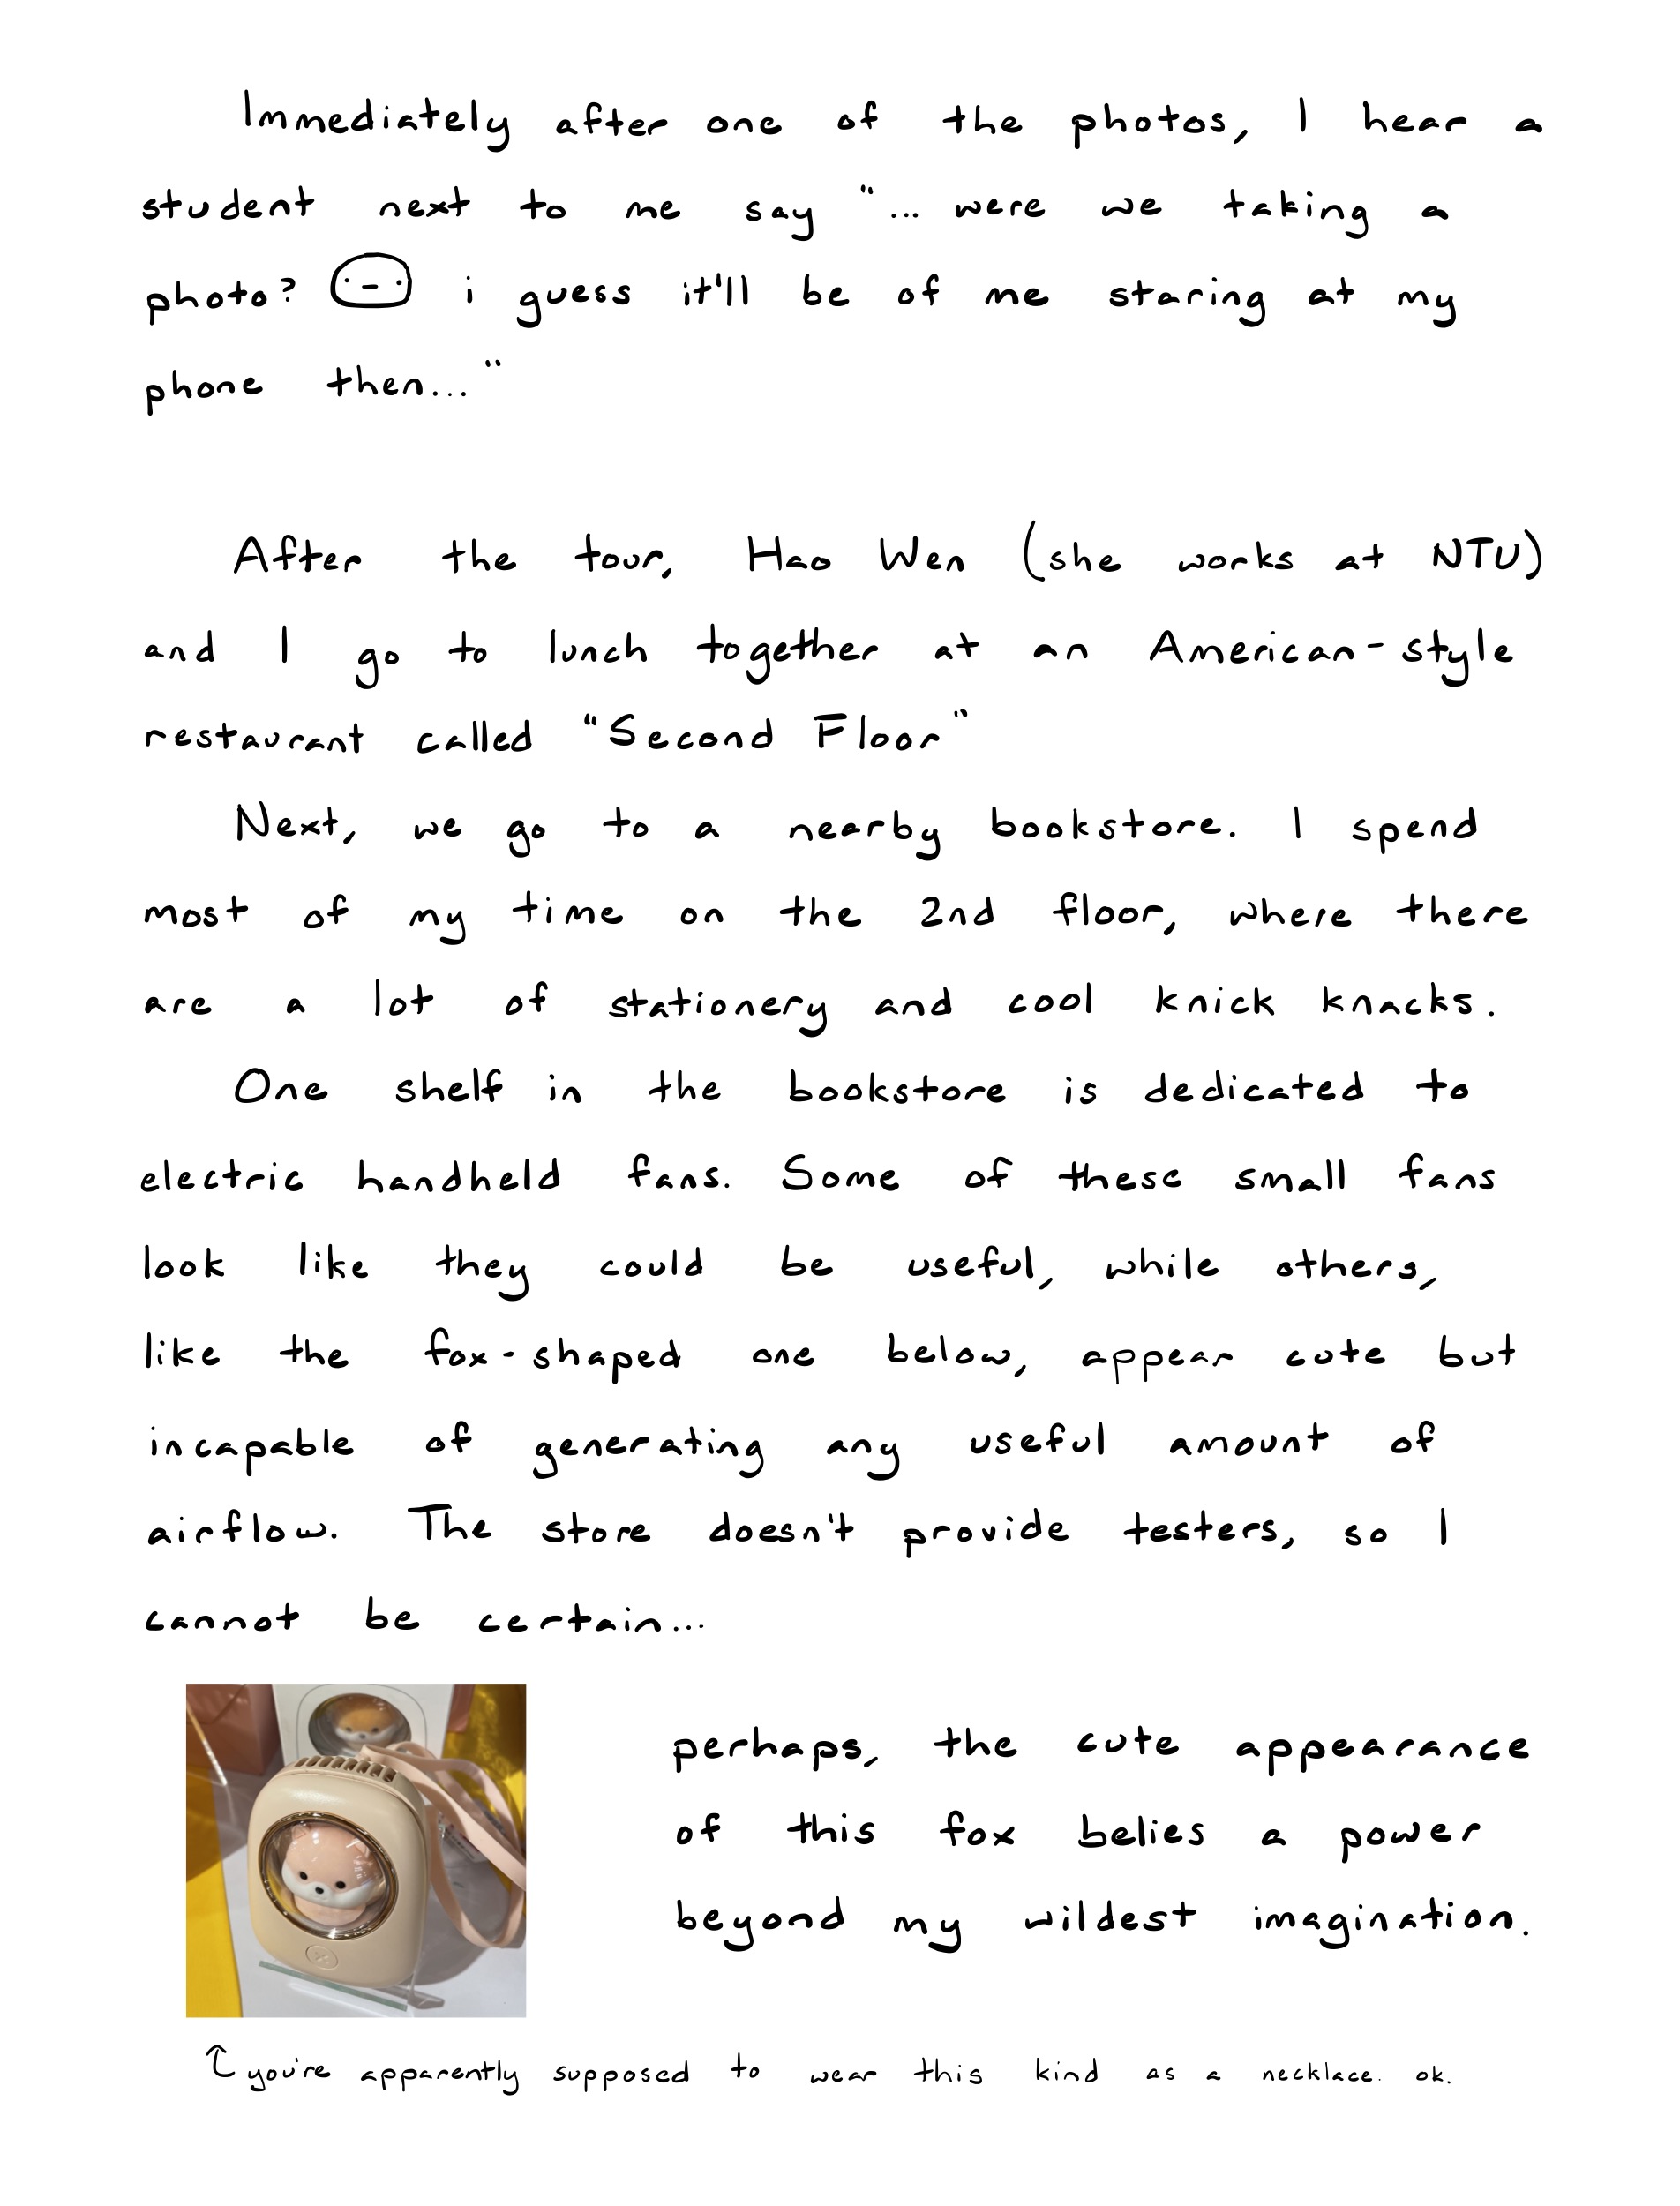 Immediately after one of the photos, I hear a
student next to me say "... were we taking a
photo? i guess it'll be of me staring at my
phone then..."
After the tour, Hao Wen (she works at NTU)
and I go to lunch together at an American-style
restaurant called "Second Floor"
Next, we go to a nearby bookstore. I spend
most of my time on the 2nd floor, where there
are a lot of stationery and cool knick knacks.
One shelf in the bookstore is dedicated to
electric handheld fans. Some of these small fans
look like they could be useful, while others,
like the fox-shaped one below, appear cute but
incapable of generating any useful amount of
airflow. The store doesn't provide testers, so I
cannot be certain...
perhaps, the cute appearance
of this fox belies a power
beyond my wildest imagination.
you're apparently supposed to wear this kind as a necklace. ok.